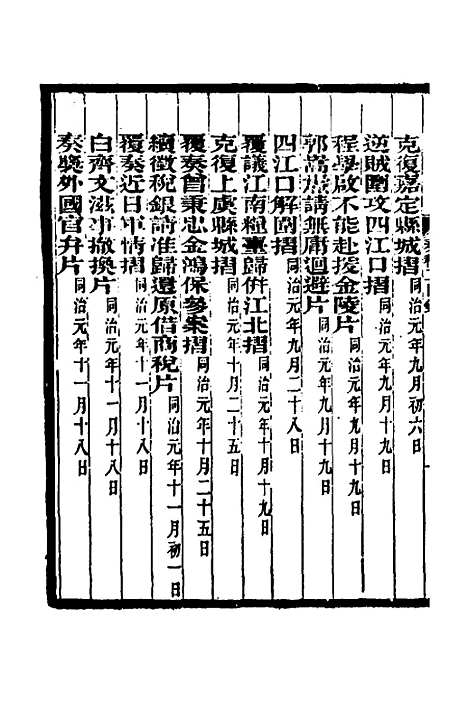 克復嘉定縣城摺 同治元年九月初六日
逆賊圍攻四江口摺 同治元年九月十九日
程學啟不能赴援金陵片 同治元年九月十九日
郭嵩燾請無庸迴避片 同治元年九月十九日
四江口解圍摺 同治元年九月二十八日
覆議江南糧臺歸併江北摺 同治元年十月十九日
克復上虞縣城摺 同治元年十月二十五日
覆奏曾秉忠金鴻保參案摺 同治元年十月二十五日
續徵稅銀請准歸還原借商稅片 同治元年十一月初一日
覆奏近日軍情摺 同治元年十一月十八日
白齊文滋事撤換片 同治元年十一月十八日
奏獎外國官弁片 同治元年十一月十八日